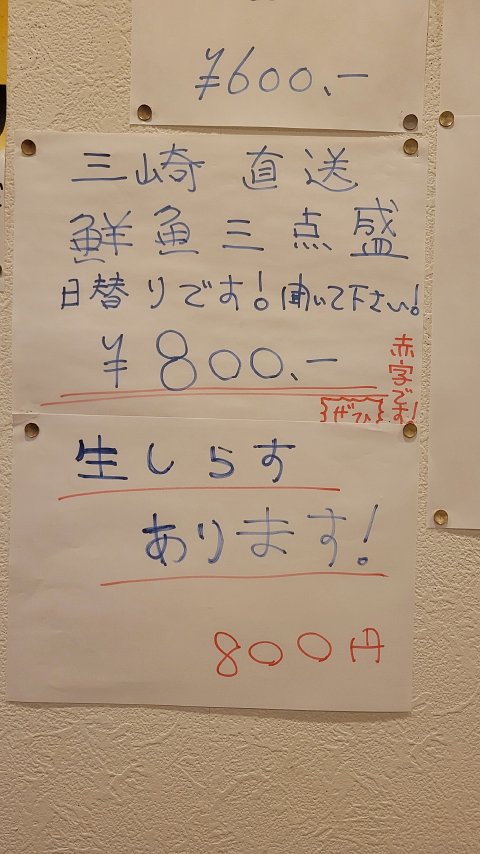 ¥600.-
三崎 直送
鮮魚三点盛
日替りです!聞いて下さい!
¥800.-
赤字です!
ぜひ
生しらす
あります!
800円